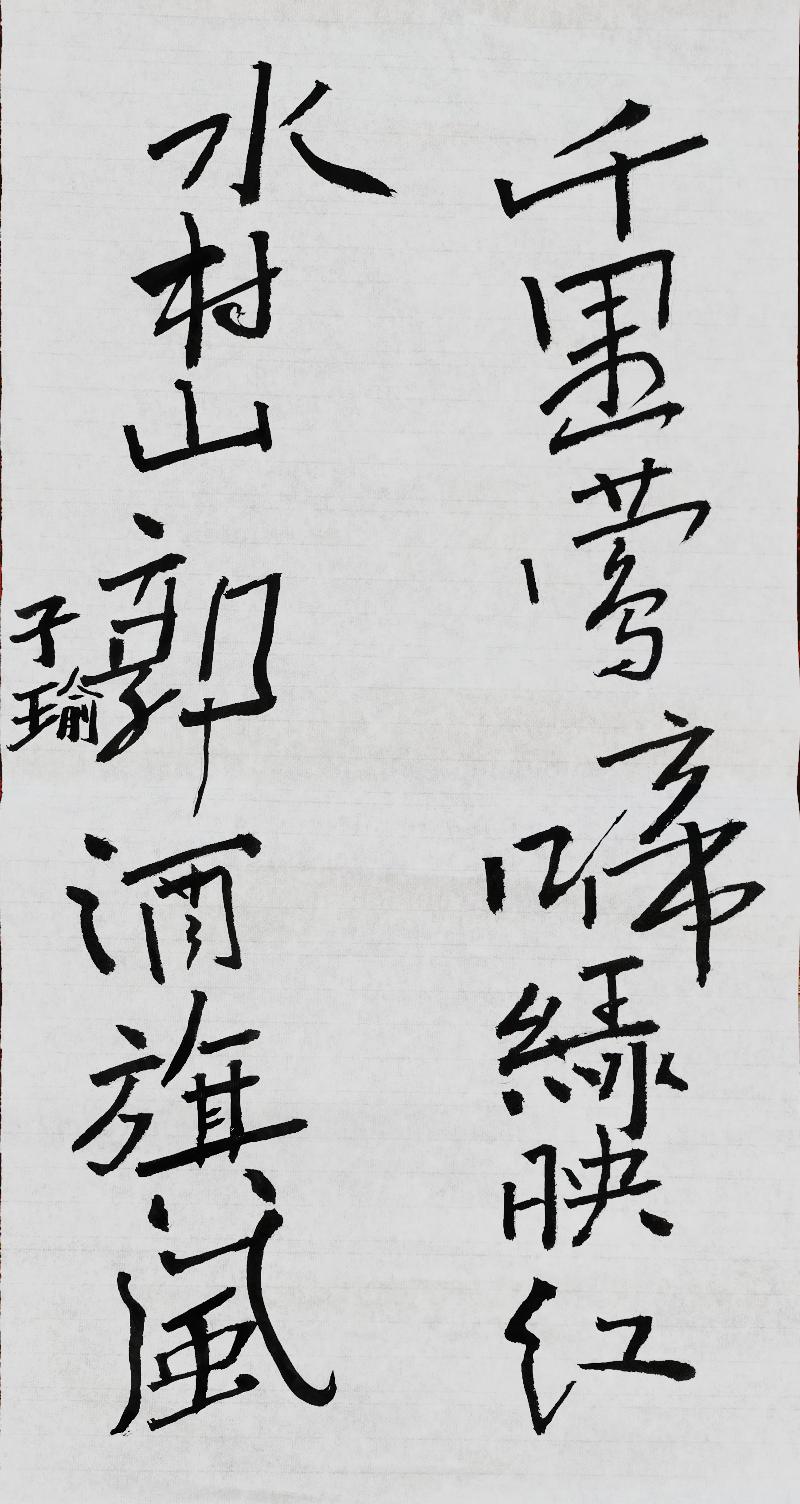 千里莺啼綠映红
水村山郭酒旗風
子瑜